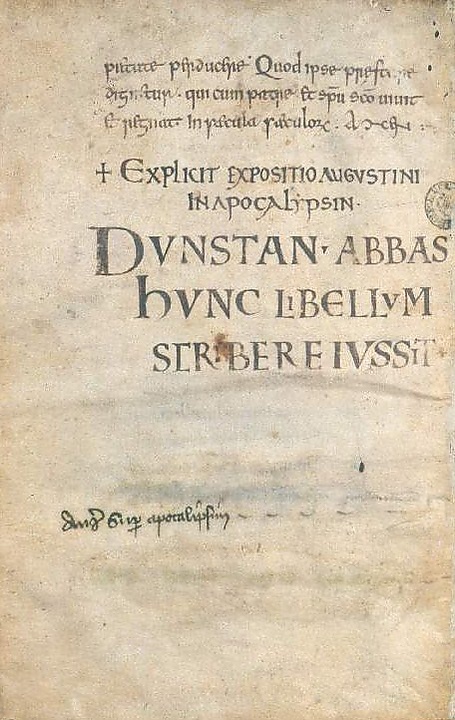 pietate perducere· Quod ipse prestare
dignetur· qui cum patre et sp̄u sc̄o uiuit
et regnat in sæcula sæculorꝝ· Amen :
+ EXPLICIT EXPOSITIO AUGUSTINI
IN APOCALYPSIN·
DVNSTAN· ABBAS
hVNC LIBELLVM
SCRIBERE IVSSIT·
Aug9 Sup apocalipsim